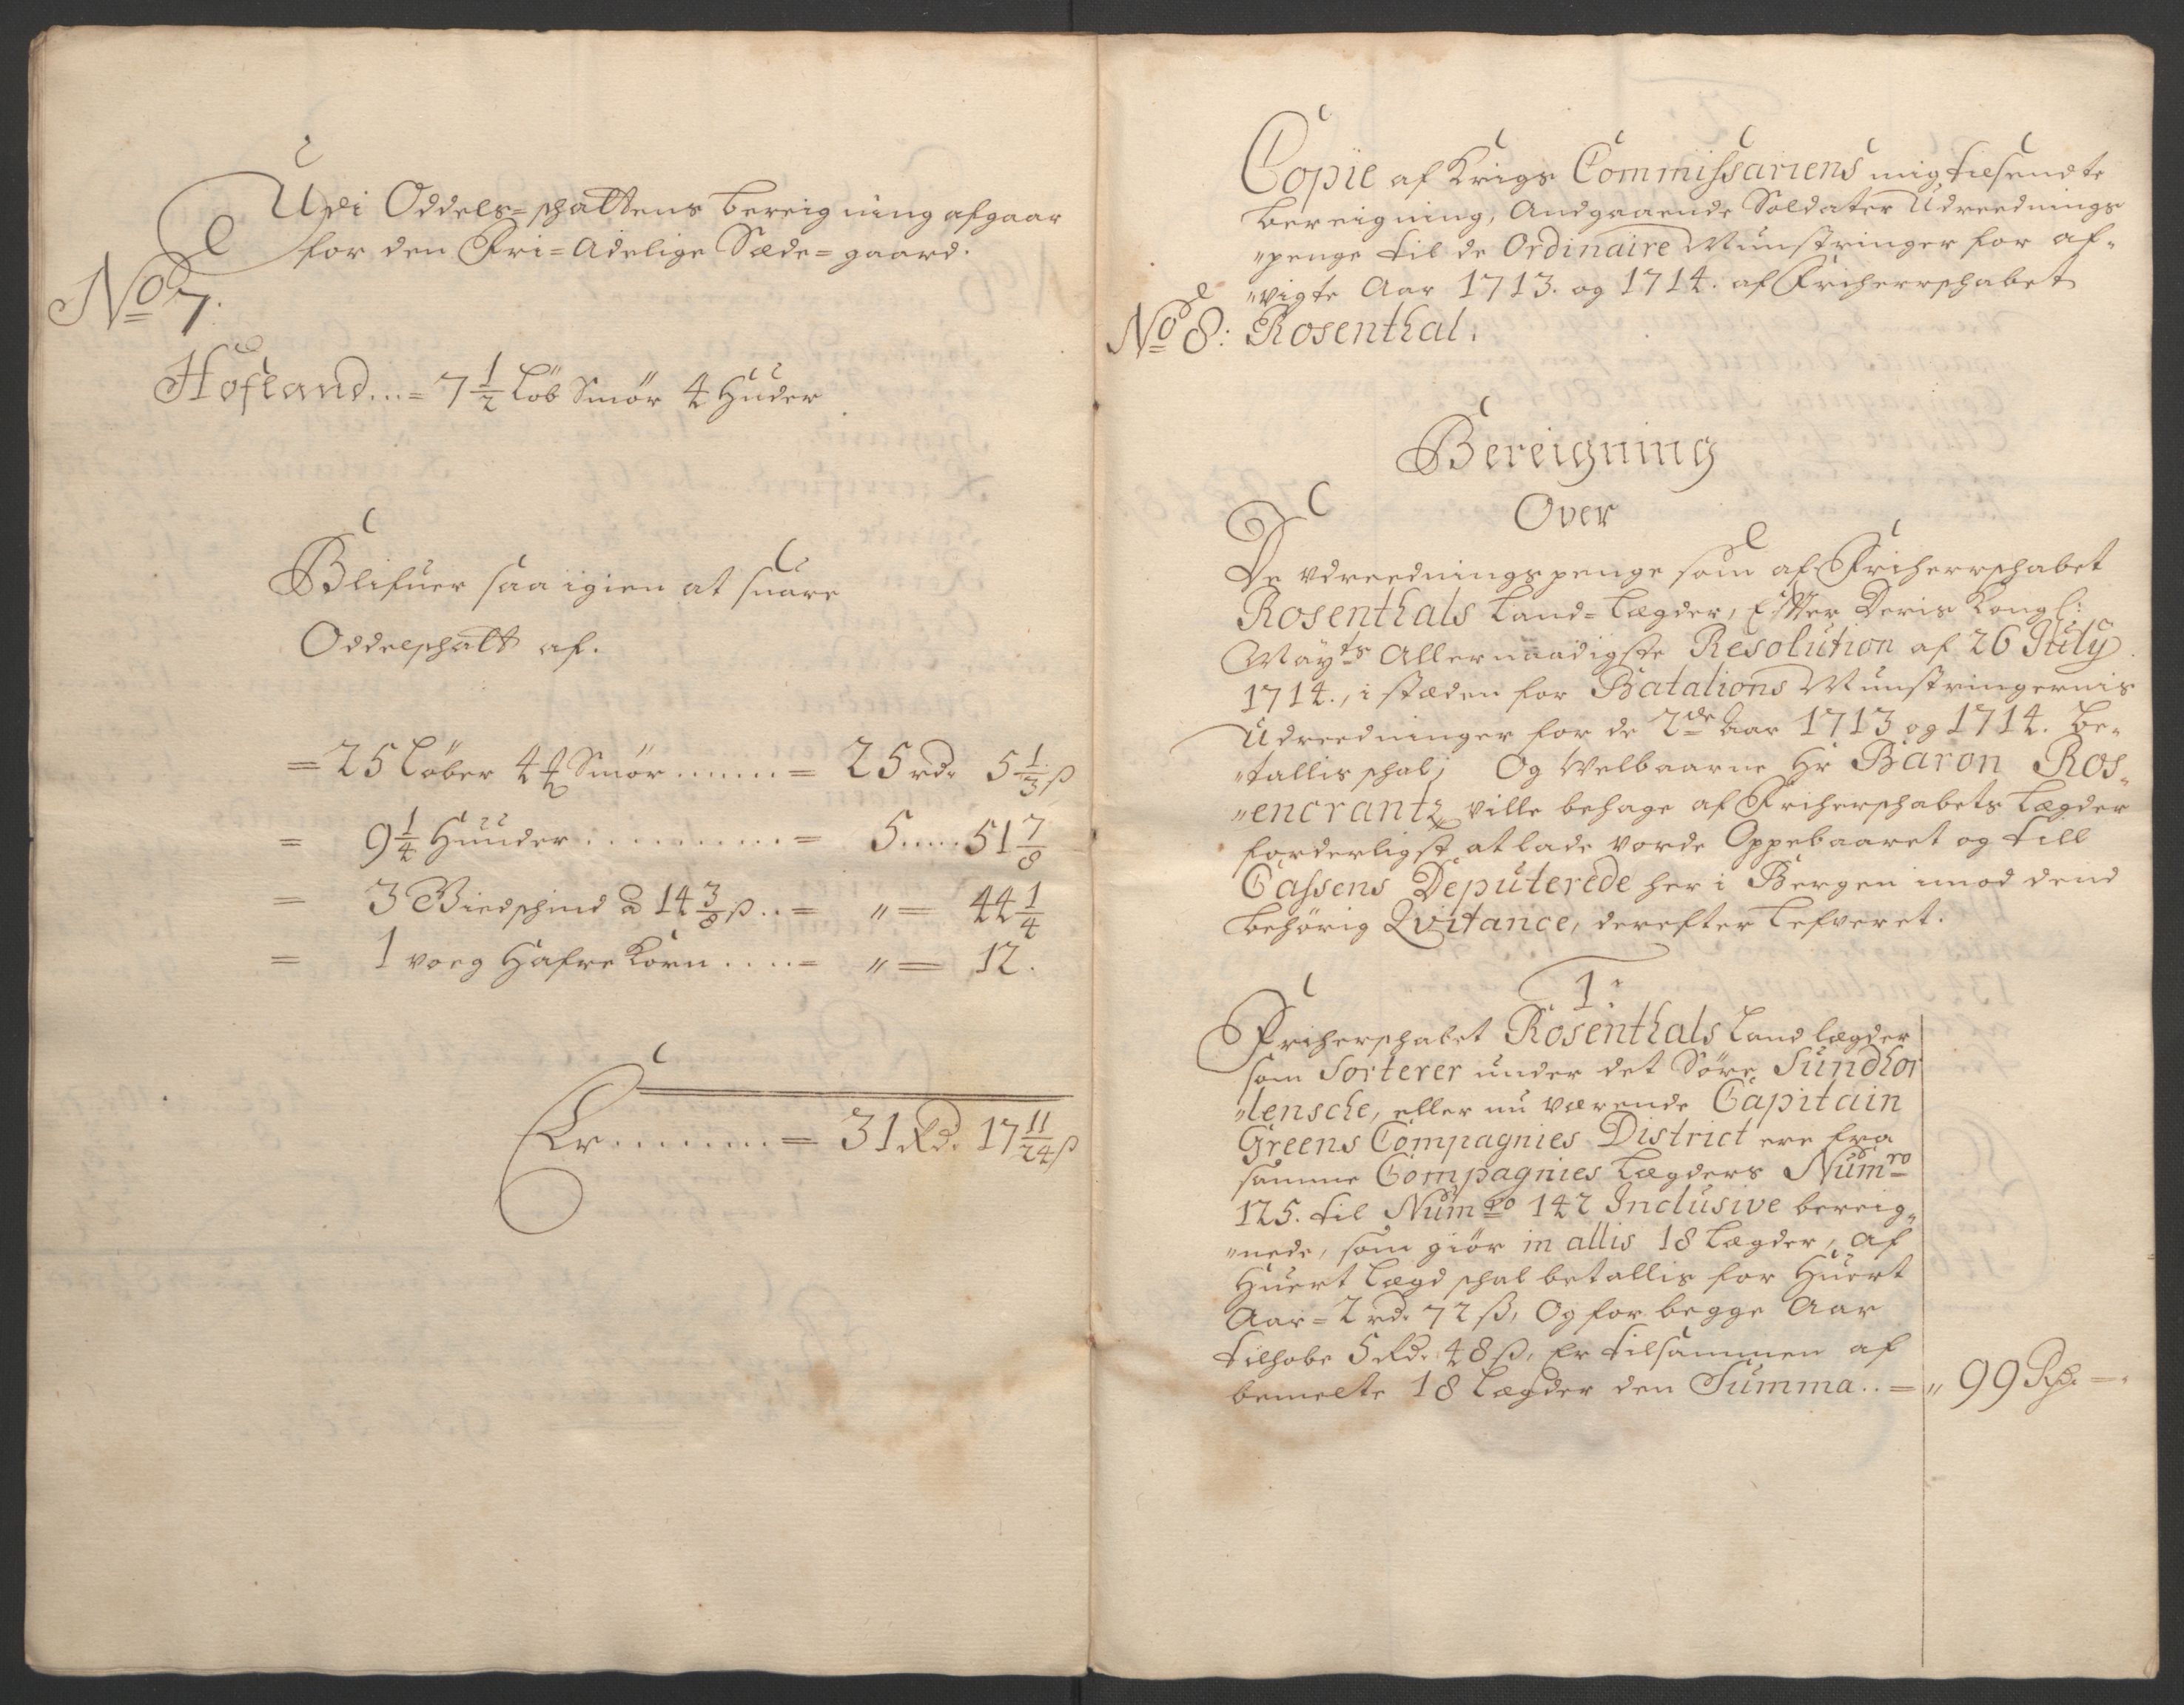 Udi Oddels=schattens bereigning afgaar
for den Fri=Adelige Sæde=gaard.
No 7.
Hofland...= 7 1/2 Løb Smør 4 Huder
Blifuer saa igien at suare
Oddelschatt af.
= 25 Løber 4 ℔ Smør.......= 25 rd. 5 1/3 ß
= 9 1/4 Huuder............= 5.....51 7/8
= 3 Biedschind a 14 3/8 ß..= "= 44 1/4
= 1 voeg Hafre Korn.....= "= 12.
Er.........= 31 Rd. 17 11/24 ß
Copie af Krigs Commissariens mig tilsendte
bereigning, Andgaaende Soldater Udreednings
"penge til de Ordinaire Munstringer for af-
"vigte Aar 1713. og 1714. af Friherschabet
No 8: Rosenthal.
Bereigning
Over
De vdreedningspenge som af Friherschabet
Rosenthals Land=Lægder, Efter Deris Kongl:
Mayts Allernaadigste Resolution af 26 July
1714., i stæden for Batalions Munstringernis
Udreedninger for de 2de Aar 1713 og 1714. be-
"tallis schal; Og Velbaarne Hr Baron Ros-
"encrantz ville behage af Friherschabets Lægder
forderligst at lade vorde Oppebaaret og till
Cassens Deputerede her i Bergen imod dend
behörig Qvitance, derefter Lefveret.
1:
Friherschabet Rosenthals Land lægder
som Sorterer under det Søre Sundhor
"lensche, eller nu værende Capitain
Greens Compagnies District ere fra
samme Compagnies Lægders Numro
125. til Numro 142 Inclusive bereig-
"nede, som giör in allis 18 Lægder, af
Huert Lægd schal betallis for Huert
Aar= 2 rd. 72 ß, Og for begge Aar
tilhobe 5 Rd. 48 ß, Er tilsammen af
bemelte 18 Lægder den Summa..= " 99 Rd. =